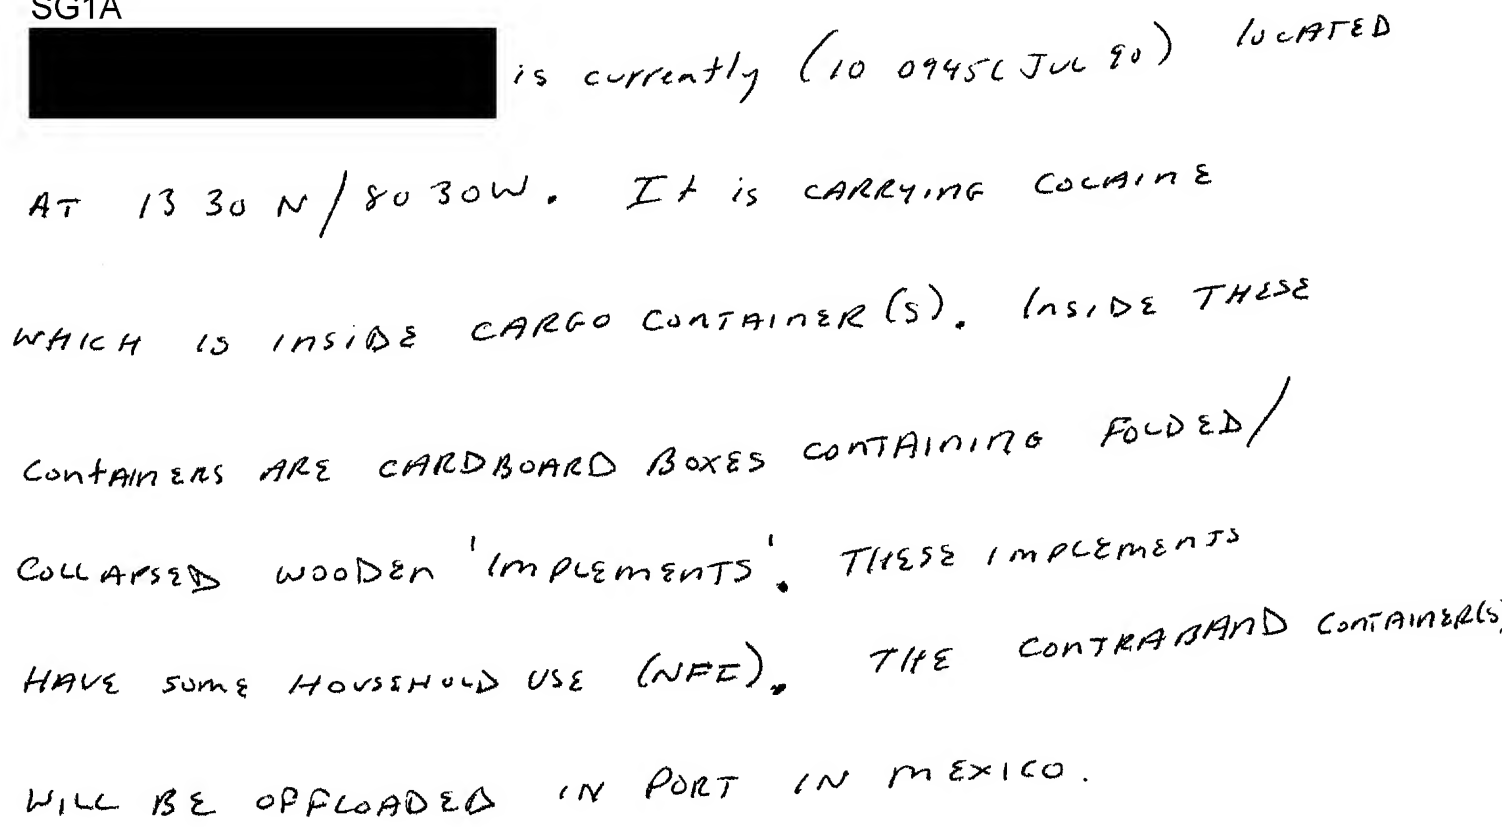 SG1A
is currently (10 0945L JUL 90) LOCATED
AT 13 30 N/80 30W. It is CARRYING COCAINE
WHICH IS INSIDE CARGO CONTAINER(S). INSIDE THESE
CONTAINERS ARE CARDBOARD BOXES CONTAINING FOLDED/
COLLAPSED WOODEN 'IMPLEMENTS'. THESE IMPLEMENTS
HAVE SOME HOUSEHOLD USE (NFI). THE CONTRABAND CONTAINER(S)
WILL BE OFFLOADED IN PORT IN MEXICO.